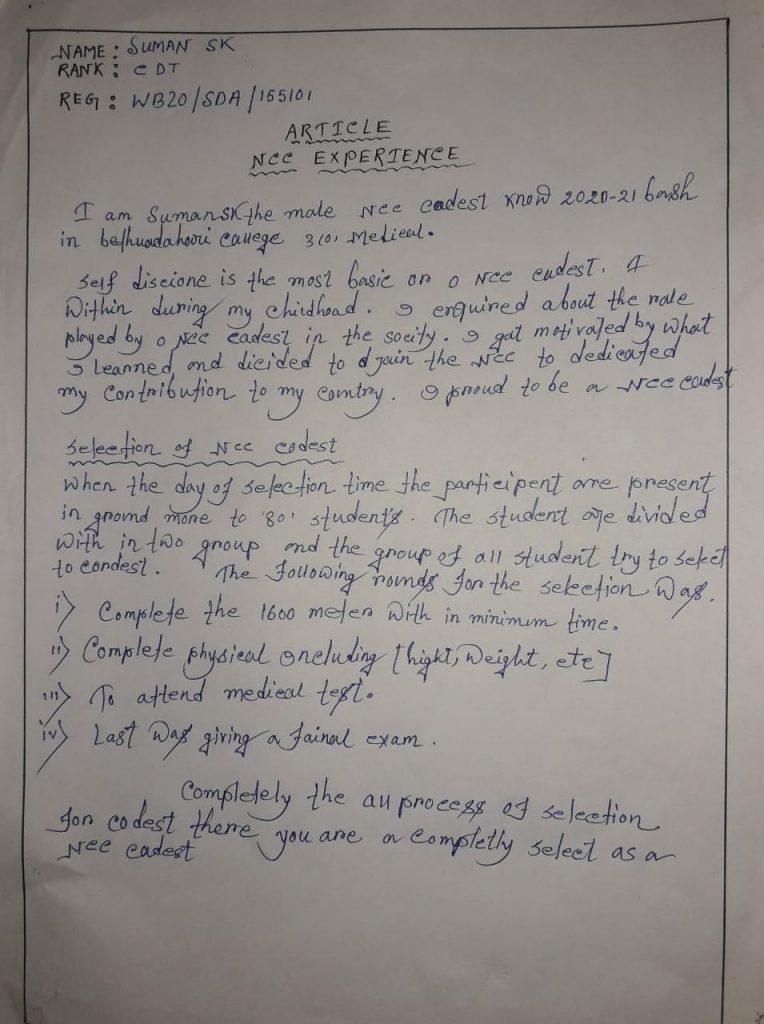 NAME : SUMAN SK
RANK : CDT
REG : WB20/SDA/155101
ARTICLE
NCC EXPERIENCE
I am Suman SK the male NCC cadest know 2020-21 bash
in College 3(0) Medical.
Self discione is the most basic on o NCC cadest. I
Within during my childhood. I enquired about the role
played by o NCC cadest in the socity. I gat motivated by what
I Learned and dicided to djain the NCC to dedicated
my contribution to my country. I proud to be a NCC cadest
Selection of NCC codest
When the day of selection time the participent are present
in ground more to '80' students. The student are divided
with in two group and the group of all student try to select
to condest. The Following rounds for the selection was.
i) Complete the 1600 meter with in minimum time.
ii) Complete physical oncluding [hight, weight, etc]
iii) To attend medical test.
iv) Last was giving a fainal exam.
Completely the all process of selection
for codest there you are a completly select as a
NCC cadest